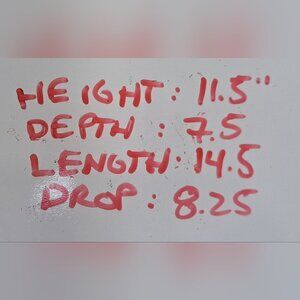 HEIGHT: 11.5"
DEPTH : 7.5
LENGTH: 14.5
DROP: 8.25